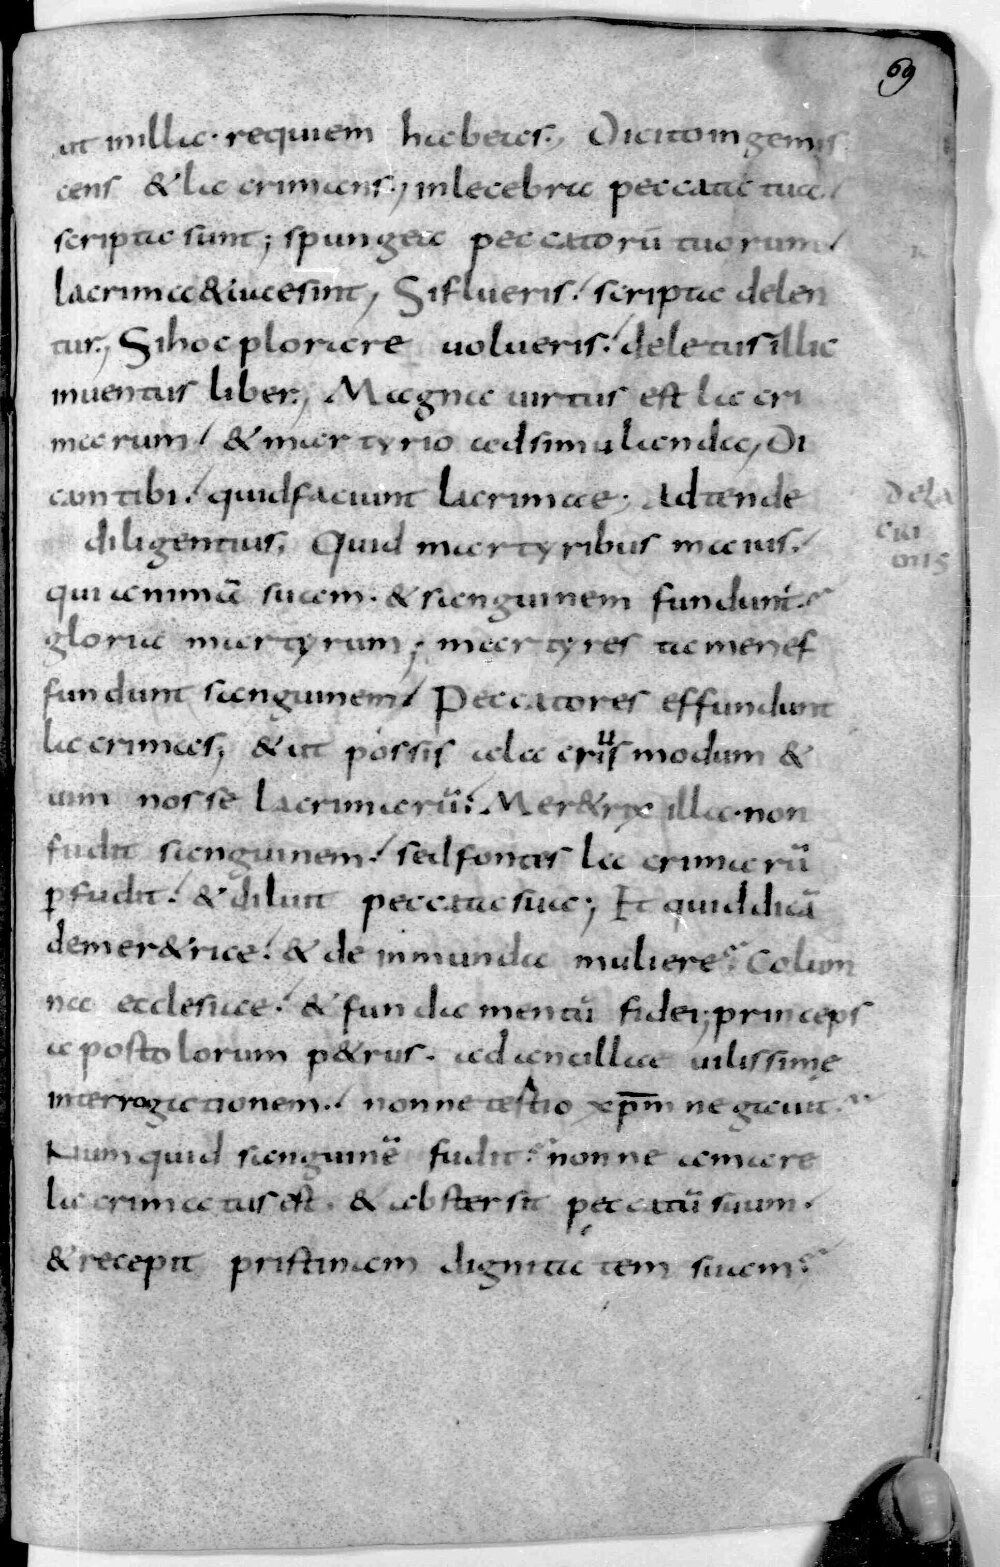 69
ut inillic· requiem habeas·, Dicitoingemis
cens & lacrimans·, inlecebra peccata tua·/
scripta sunt; spungea peccatorū tuorum·/
lacrimae&iuesint, Sifluveris·/ scripta delen
tur·, Sihoc plorare uolueris·/ deletusillic
inuentus liber·, Magna uirtus est lacri
marum·/ & martyrio adsimulanda, Di
cam tibi·/ quidfaciunt lacrimae· Adtende
diligentius, Quid martyribus maius·/
qui animā suam· & sanguinem fundunt·
gloria martyrum; martyres tamenef
fundunt sanguinem·/ Peccatores effundunt
lacrimas, & ut possis alacriꝰs modum &
uim nosse lacrimarū:· Mer&rix illa·non
fudit sanguinem·/ sedfontes lacrimarū
ꝑfudit·/ & diluit peccatasua; Et quiddicā
demer&rice·/ & de inmunda muliere· Colum
na ecclesiae·/ & fundamentū fidei; princeps
apostolorum p&rus· adancillae uilissimę
interrogationem·/ nonne testio xp̄m negauit·
Numquid sanguinē fudit· nonne amare
lacrimatusest· & abstersit peccatū suum·/
& recepit pristinam dignitatem suam·
Dela
cri
mis